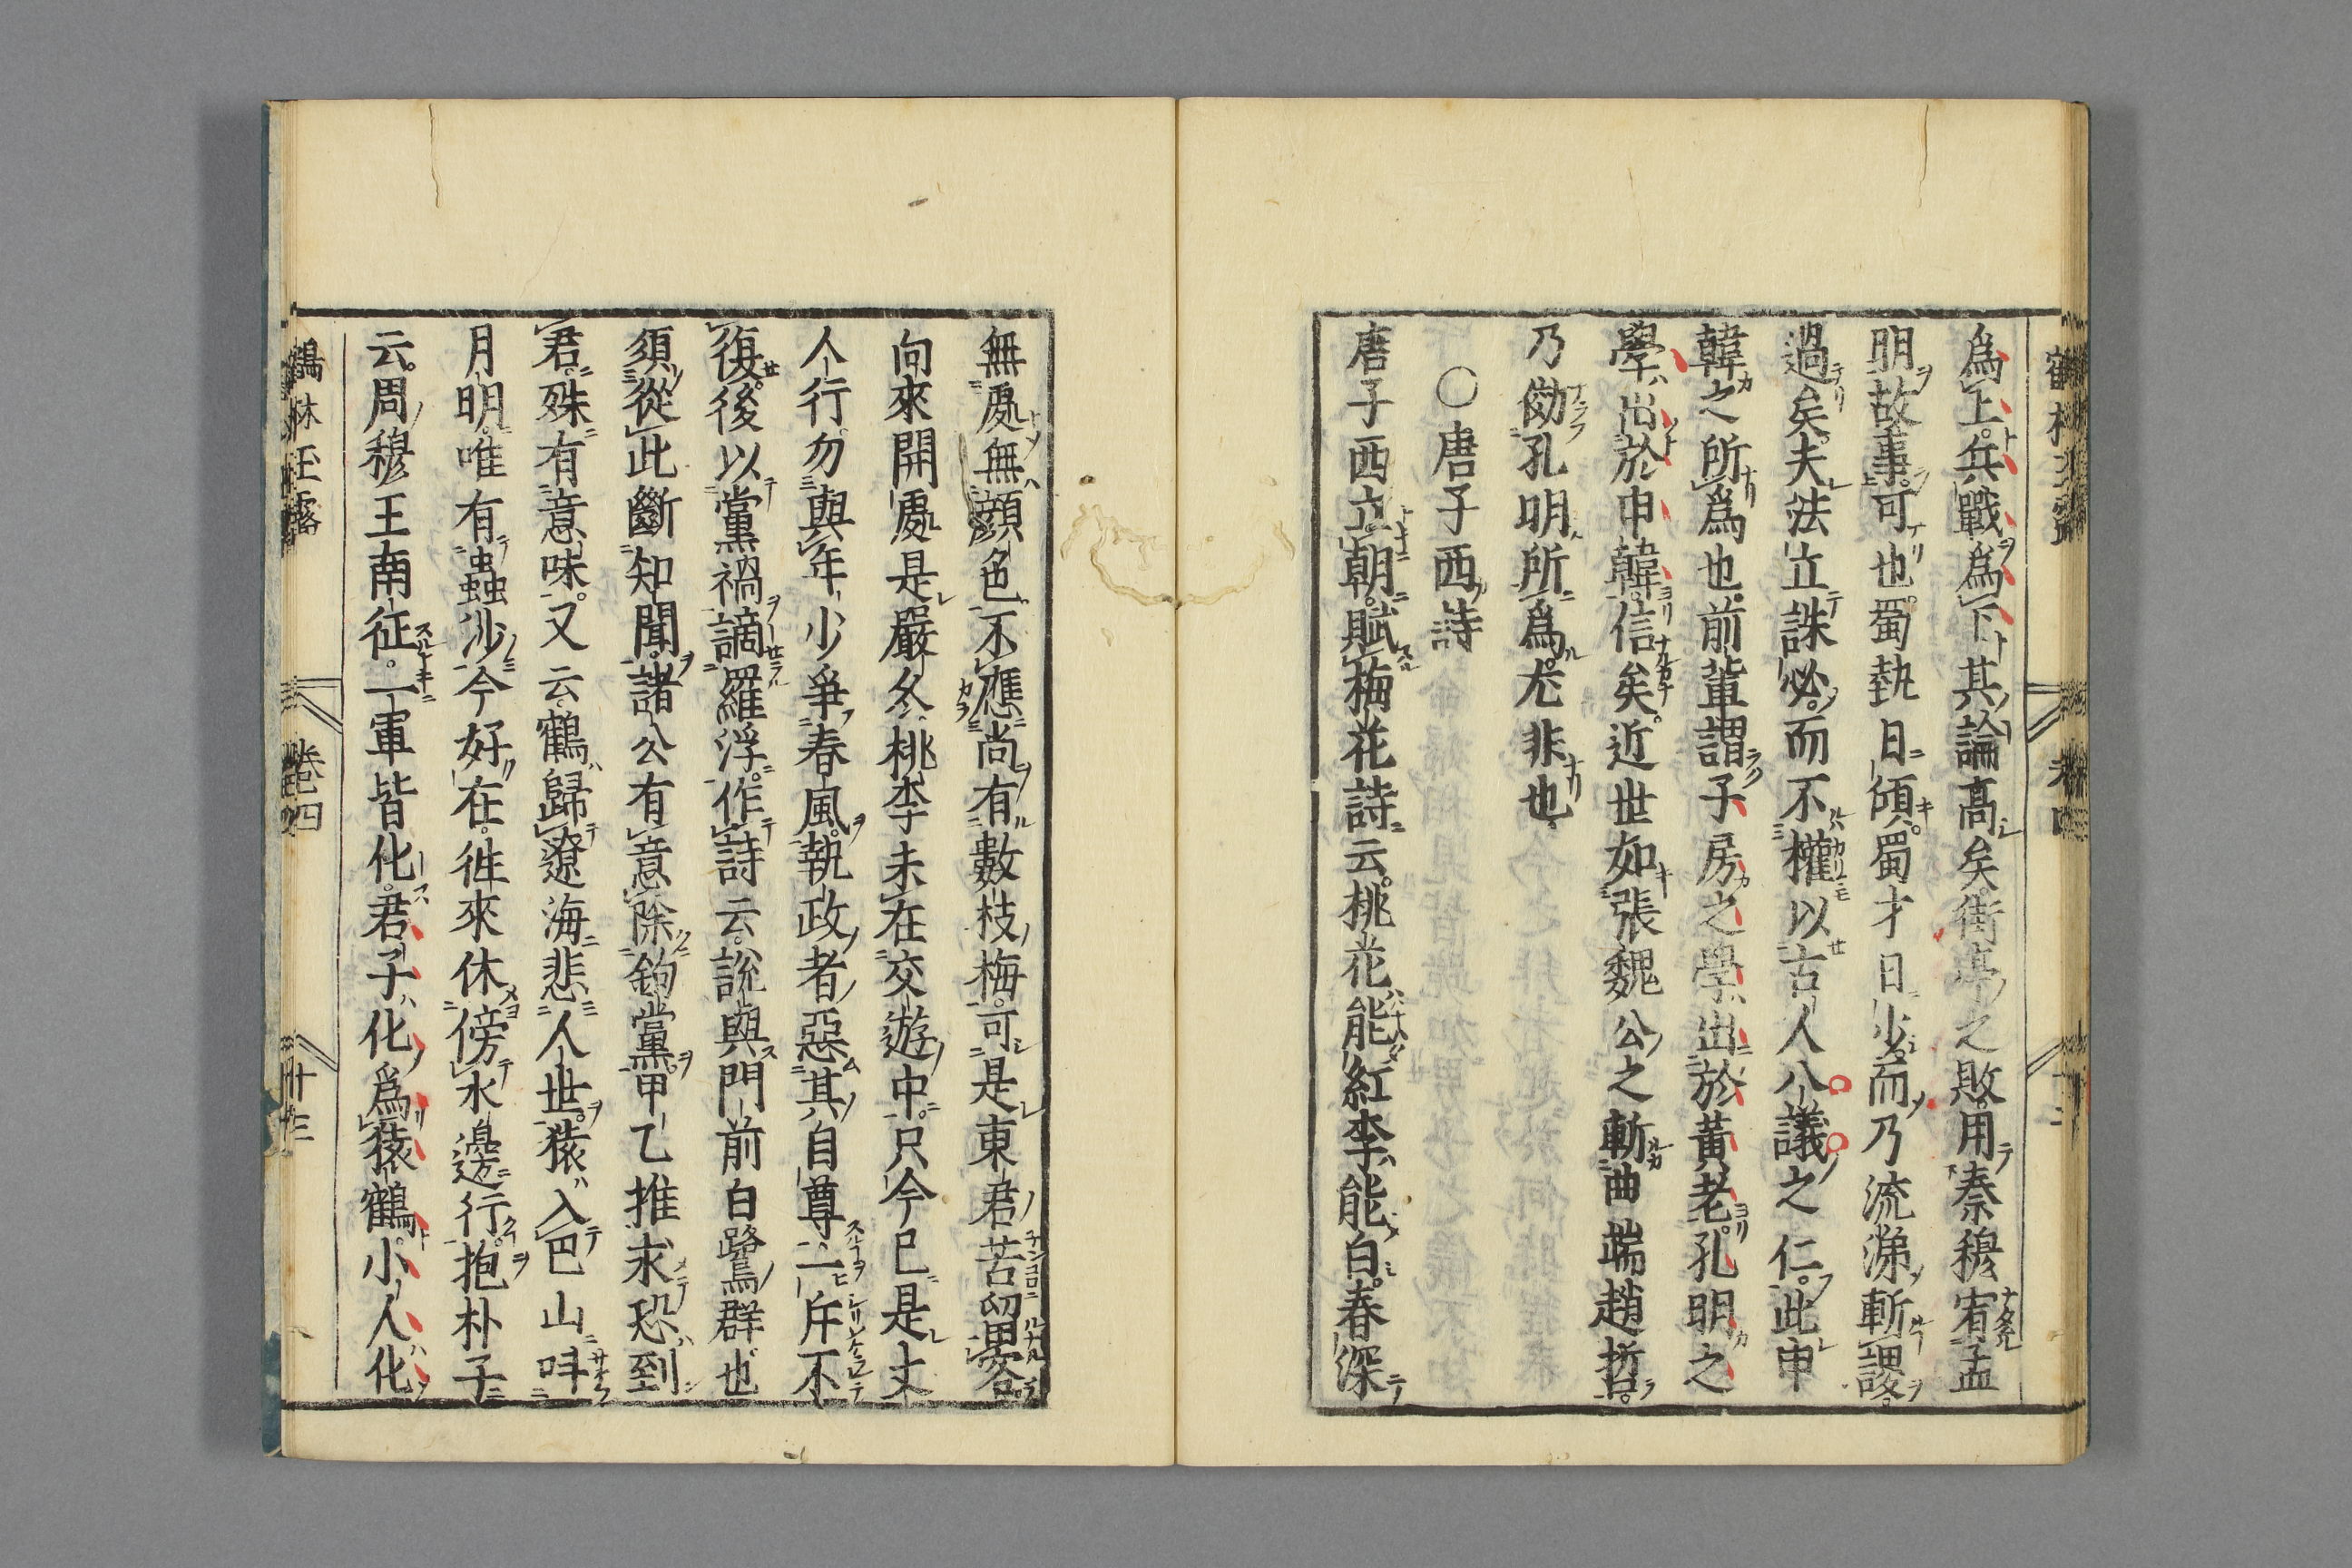 爲上兵戰爲下其論高矣街亭之敗用秦穆宥孟
明故事可也蜀執日傾蜀才日少而乃流涕斬謖
過矣夫法立誅必而不權以古人八議之仁此申
韓之所爲也前輩謂子房之學出於黃老孔明之
學出於申韓信矣近世如張魏公之斬曲端趙哲
乃效孔明所爲尤非也
〇唐子西詩
唐子西立朝賦梅花詩云桃花能紅李能白春深
無處無顔色不應尚有數枝梅可是東君苦留客
向來開處是嚴冬桃李未在交遊中只今已是丈
人行勿與年少爭春風執政者惡其自尊一斥不
復後以黨禍謫羅浮作詩云說與門前白鷺群也
須從此斷知聞諸公有意除鉤黨甲乙推求恐到
君殊有意味又云鶴歸遼海悲人世猿入巴山呌
月明唯有蟲沙今好在徃來休傍水邊行抱朴子
云周穆王南征一軍皆化君子化爲猿鶴小人化
鶴林玉露　卷四　十三